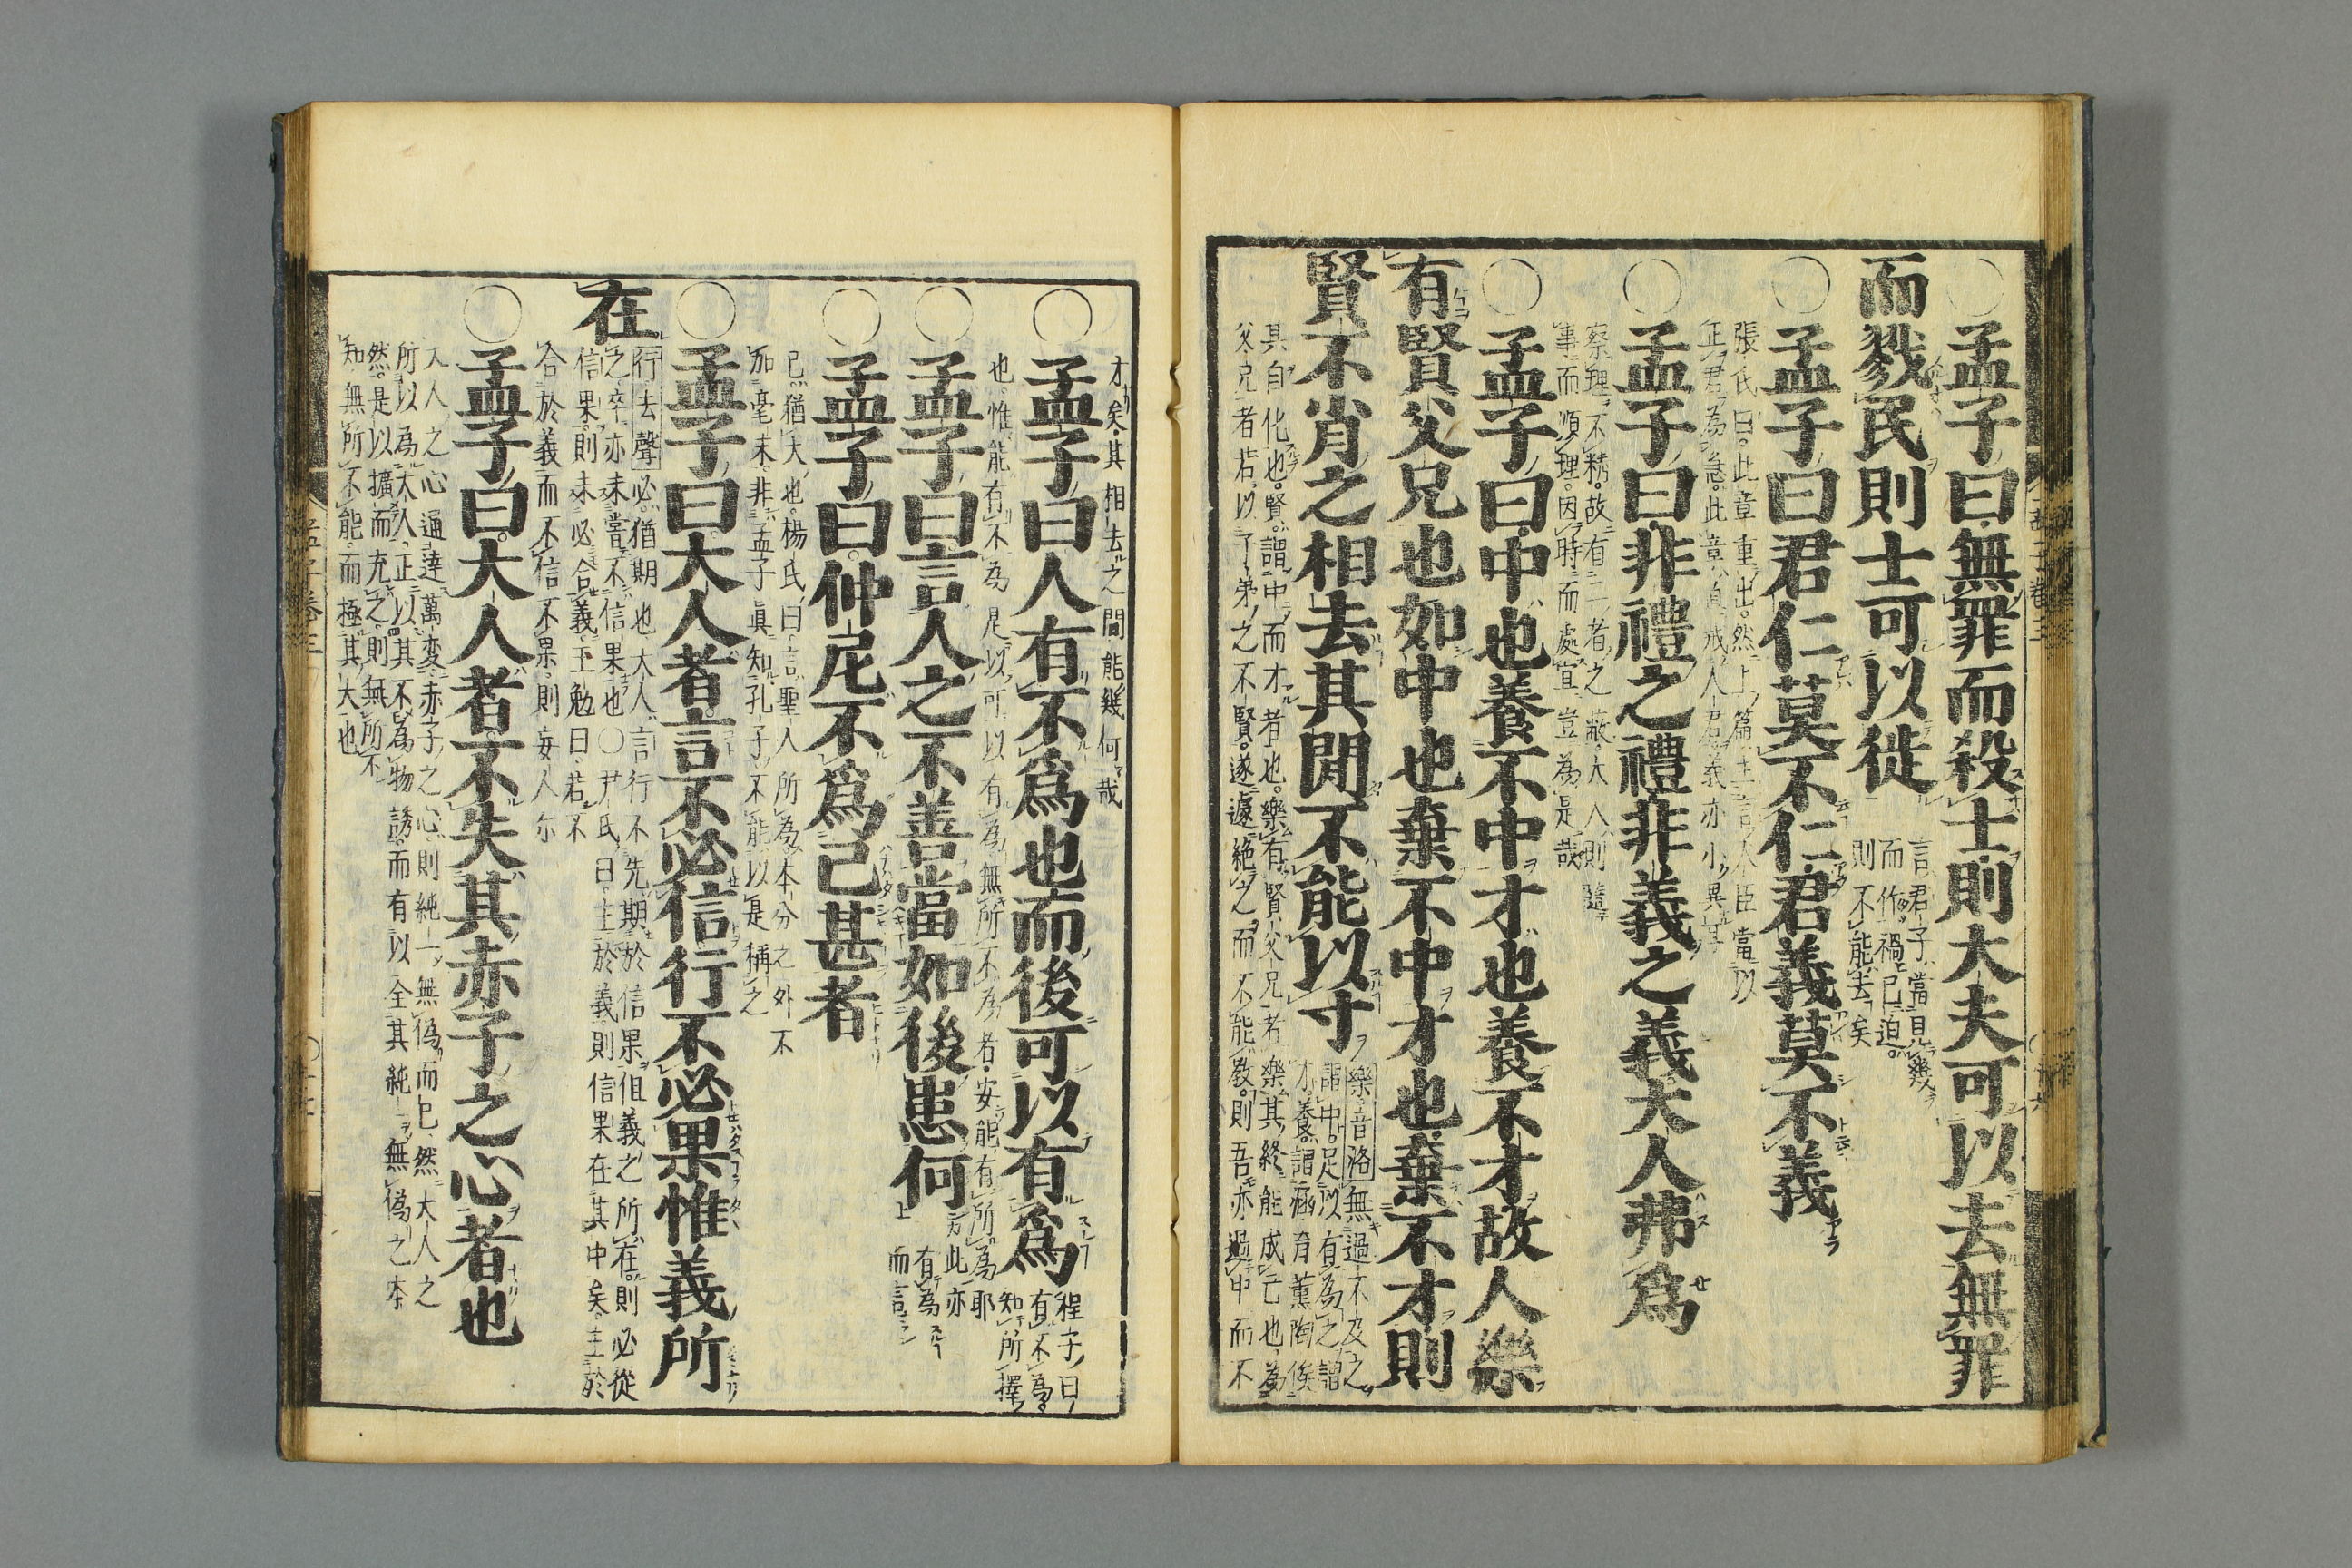 ○孟子曰無罪而殺士則大夫可以去無罪
而戮民則士可以徙
言君子當見幾
而作禍已迫
則不能去矣
○孟子曰君仁莫不仁君義莫不義
張氏曰此章重出然上篇主言人臣當以
正君為急此章直戒人君義亦小異耳
○孟子曰非禮之禮非義之義大人弗爲
察理不精故有二者之蔽大人則隨
事而順理因時而處宜豈為是哉
○孟子曰中也養不中才也養不才故人樂
有賢父兄也如中也棄不中才也棄不才則
賢不肖之相去其閒不能以寸
樂音洛無過不及之
謂中足以有為之謂
才養謂涵育薰陶俟
其自化也賢謂中而才者也樂有賢父兄者樂其終能成己也為
父兄者若以子弟之不賢遂遽絶之而不能教則吾亦過中而不
才矣其相去之間能幾何哉
○孟子曰人有不爲也而後可以有爲
程子曰
有不為
知所擇
也惟能有不為是以可以有為無所不為者安能有所為耶
○孟子曰言人之不善當如後患何
此亦
有為
而言
○孟子曰仲尼不爲已甚者
已猶太也楊氏曰言聖人所為本分之外不
加毫末非孟子眞知孔子不能以是稱之
○孟子曰大人者言不必信行不必果惟義所
在
行去聲必猶期也大人言行不先期於信果但義之所在則必從
之卒亦未嘗不信果也○尹氏曰主於義則信果在其中矣主於
信果則未必合義王勉曰若不
合於義而不信不果則妄人尓
○孟子曰大人者不失其赤子之心者也
大人之心通達萬変赤子之心則純一無偽而已然大人之
所以為大人正以其不為物誘而有以全其純一無偽之本
然是以擴而充之則無所不
知無所不能而極其大也